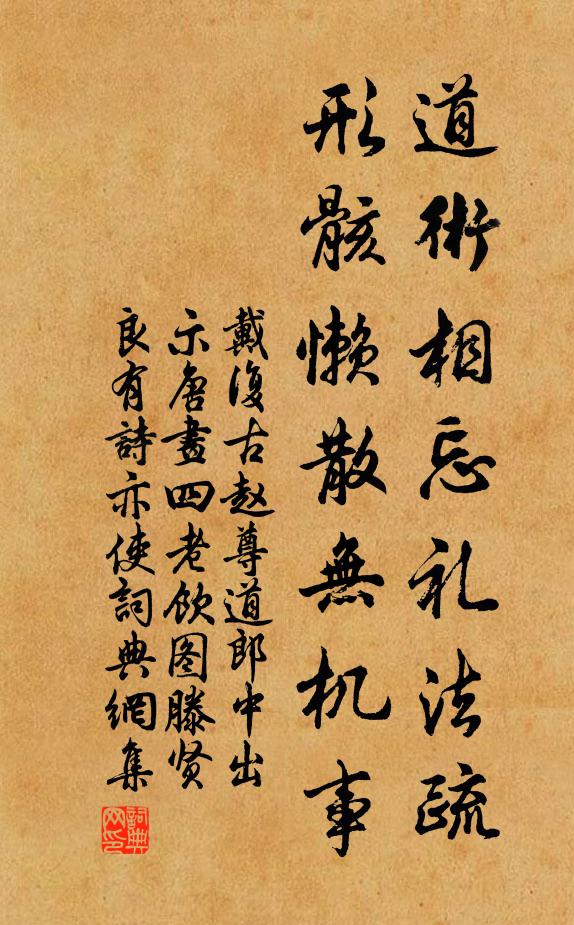 道術相忘礼法疏
形骸懒散無机事
戴復古赵尊道郎中出
示唐畫四老饮图滕贤
良有詩亦使詞典網集
詞典
网印